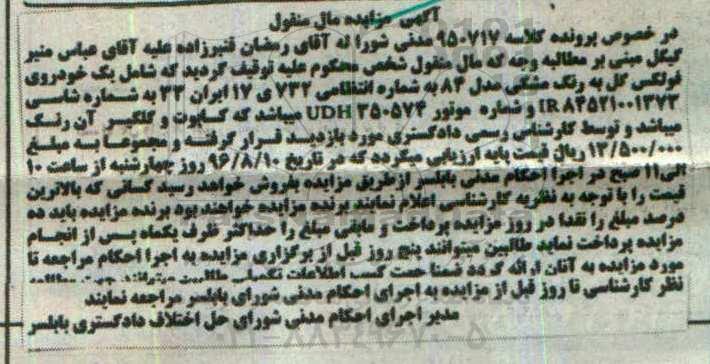 آگهی مزایده مال منقول
در خصوص پرونده کلاسه ۹۵۰۷۱۷ مدنی شورا له آقای رمضان قنبرزاده علیه آقای عباس منیر
گیگل مبنی بر مطالبه وجه که مال منقول شخص محکوم علیه توقیف گردید که شامل یک خودروی
فولکس گل به رنگ مشکی مدل ۸۴ به شماره انتظامی ۷۳۲ ی ۱۷ ایران ۳۳ به شماره شاسی
IR ۸۴۵۲۱۰۰۱۳۷۳ و شماره موتور UDH ۳۵۰۵۷۴ میباشد که کاپوت و گلگیر آن رنگ
میباشد و توسط کارشناس رسمی دادگستری مورد بازدید قرار گرفته و مجموعا به مبلغ
۱۳/۵۰۰/۰۰۰ ریال قیمت پایه ارزیابی میگردد که در تاریخ ۹۶/۸/۱۰ روز چهارشنبه از ساعت ۱۰
الی ۱۱ صبح در اجرا احکام مدنی بابلسر ازطریق مزایده بفروش خواهد رسید کسانی که بالاترین
قیمت را با توجه به نظریه کارشناسی اعلام نمایند برنده مزایده خواهند بود برنده مزایده باید ده
درصد مبلغ را نقدا در روز مزایده پرداخت و مابقی مبلغ را حداکثر ظرف یکماه پس از انجام
مزایده پرداخت نماید طالبین میتوانند پنج روز قبل از برگزاری مزایده به اجرا احکام مراجعه تا
مورد مزایده به آنان ارائه گردد ضمنا جهت کسب اطلاعات تکمیلی
نظر کارشناسی تا روز قبل از مزایده به اجرای احکام مدنی شورای بابلسر مراجعه نمایند
مدیر اجرای احکام مدنی شورای حل اختلاف دادگستری بابلسر